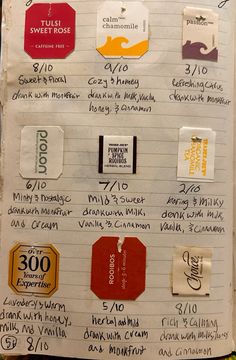 TULSI
SWEET ROSE
CAFFEINE FREE
calm
chamomile
passion
8/10
9/10
3/10
Sweet & floral
Cozy & honey
refreshing citrus
drank with monkfruit
drank with milk, vanilla,
drank with monkfruit
honey & cinnamon
PUMPKIN
SPICE
ROOIBOS
HERBAL BLEND
6/10
7/10
2/10
Minty & nostalgic
Mild & Sweet
boring & milky
drank with monkfruit
drank with milk,
drank with milk
and cream
Vanilla, & Cinnamon
Vanilla, & Cinnamon
OVER
300
Years of
Expertise
ROOIBOS
Choice
Lavendery & warm
5/10
8/10
drank with honey,
herbal and mild
rich & calming
milk, and vanilla
drank with cream
8/10
and monkfruit
and cinnamon